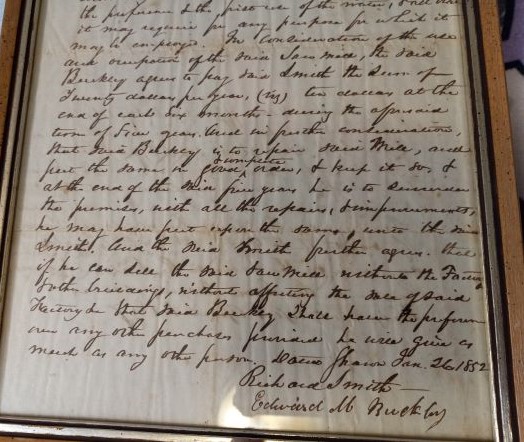 the preference & the first use of the water,
it may require for any purpose for which it
may be employed. In Consideration of the use
and occupation of the said Saw Mill, the said
Buckley agrees to pay said Smith the Sum of
Twenty dollars per year, (viz) ten dollars at the
end of each six months during the aforesaid
term of five years. And in further consideration,
that said Buckley is to repair said Mill, and
put the same in good & complete order, & keep it so, &
at the end of the said five years he is to surrender
the premises, with all the repairs, & improvements,
he may have put upon the same, unto the said
Smith. And the said Smith further agrees that
if he can sell the said Saw Mill without the Factory
& other buildings, without affecting the sale of said
Factory &c that said Buckley shall have the preference
over any other purchaser provided he will give as
much as any other person. Dated Sharon Jan. 26 1852
Richard Smith
Edward M Buckley